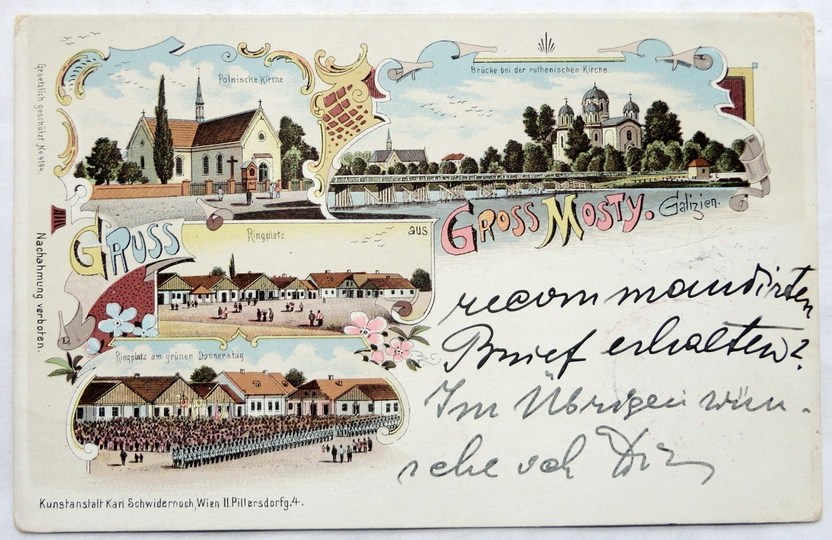 Polnische Kirche
Brücke bei der ruthenischen Kirche.
Gesetzlich geschützt No 4194.
Nachahmung verboten.
GRUSS
Ringplatz
aus
GROSS MOSTY. Galizien.
Ringplatz am grünen Donnerstag
recommandirten
Brief erhalten?
Im Übrigen wün-
sche ich Dir
Kunstanstalt Karl Schwidernoch, Wien II. Pillersdorfg. 4.